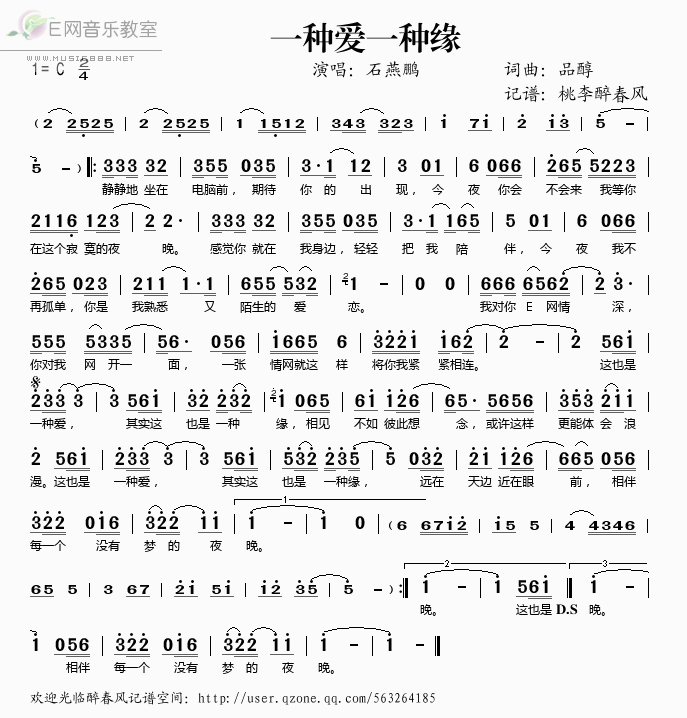 E网音乐教室
WWW.MUSIC8888.NET
一种爱一种缘
1=C 2/4
演唱：石燕鹏
词曲：品醇
记谱：桃李醉春风
(2 2525 | 2 2525 | 1 1512 | 343 323 | i 7i | 2 i3 | 5 -
5 - ) ‖: 333 32 | 355 035 | 3·1 12 | 3 01 | 6 066 | 265 5223
静静地 坐在 电脑前，期待 你 的 出 现，今 夜 你会 不会来 我等你
2116 123 | 2 2· | 333 32 | 355 035 | 3·1 165 | 5 01 | 6 066
在这个寂 寞的夜 晚。 感觉你 就在 我身边，轻轻 把 我 陪 伴，今 夜 我不
265 023 | 211 1·1 | 655 532 | 1 - | 0 0 | 666 6562 | 2 3·
再孤单，你是 我熟悉 又 陌生的 爱 恋。 我对你 E 网情 深，
555 5335 | 56· 056 | i665 6 | 3221 162 | 2 - | 2 56i
你对我 网 开一 面， 一张 情网就这 样 将你我紧 紧相连。 这也是
233 3 | 3 56i | 32 232 | i 056 | 6i i26 | 65· 5656 | 353 2ii
一种爱， 其实这 也是一种 缘，相见 不如 彼此想 念，或许这样 更能体 会 浪
2 56i | 233 3 | 3 56i | 532 235 | 5 032 | 2i i26 | 665 056
漫。这也是 一种爱， 其实这 也是一种缘， 远在 天边 近在眼 前，相伴
322 0i6 | 322 ii | i - | i 0 | (6 67i2 | i5 5 | 4 4346
每一个 没有 梦 的 夜 晚。
1
65 5 | 3 67 | 2i 5i | i2 35 | 5 - ) :‖ i - | i 56i ‖ i -
2
3
晚。 这也是 D.S 晚。
i 056 | 322 0i6 | 322 ii | i - | i - ‖
相伴 每一个 没有 梦 的 夜 晚。
欢迎光临醉春风记谱空间：http://user.qzone.qq.com/563264185